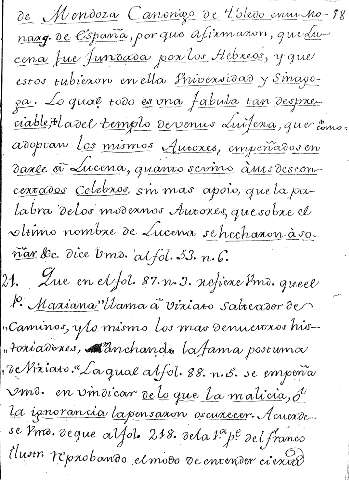 de Mendoza Canonigo de Toledo en su Mo- 98
narq. de España, por que afirmaron, que Lu-
cena fue fundada por los Hebreos, y que
estos tubieron en ella Universidad y Sinago-
ga. Lo qual todo es una fabula tan despre-
ciable, la del templo de venus Luisera, que como
adoptan los mismos Autores, empeñados en
darle à Lucena, quanto se vino à sus descon-
certados Celebros, sin mas apoio, que la pa-
labra de los modernos Autores, que sobre el
ultimo nombre de Lucena se hecharon à so-
ñar &c. dice Vmd. al fol. 53. n. 6.
21. Que en el fol. 87. n. 3. refiere Vmd. que el
P. Mariana "llama à Viriato Salteador de
Caminos, y lo mismo los mas de nuestros his-
"toriadores, manchando la fama postuma
de Viriato." La qual al fol. 88. n. 5. se empeña
Vmd. en vindicar de lo que la malicia, ó
la ignorancia la pensaron oscurecer. Acuerde-
se Vmd. de que al fol. 218. de la 1.ª p.e del franco
Ilusen reprobando el modo de entender cierto